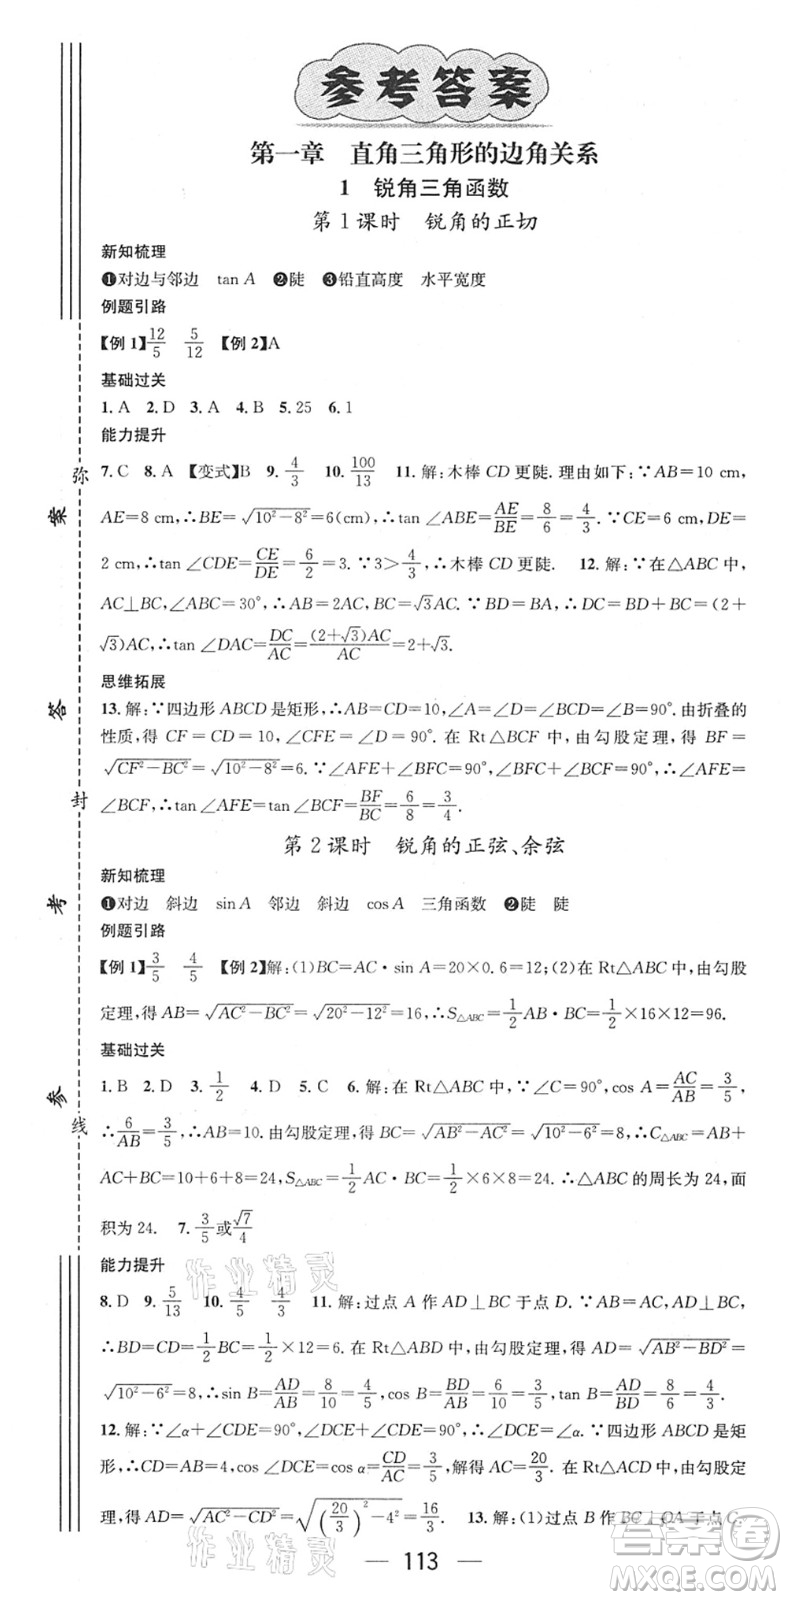 参考答案
第一章 直角三角形的边角关系
1 锐角三角函数
第1课时 锐角的正切
新知梳理
❶对边与邻边 tan A ❷陡 ❸铅直高度 水平宽度
例题引路
【例1】12/5 5/12 【例2】A
基础过关
1. A 2. D 3. A 4. B 5. 25 6. 1
能力提升
7. C 8. A 【变式】B 9. 4/3 10. 100/13 11. 解:木棒 CD 更陡. 理由如下:∵AB=10 cm,
AE=8 cm,∴BE=√(10²-8²)=6(cm),∴tan ∠ABE=AE/BE=8/6=4/3. ∵CE=6 cm,DE=
2 cm,∴tan ∠CDE=CE/DE=6/2=3. ∵3>4/3,∴木棒 CD 更陡. 12. 解:∵在△ABC 中,
AC⊥BC,∠ABC=30°,∴AB=2AC,BC=√3AC. ∵BD=BA,∴DC=BD+BC=(2+
√3)AC,∴tan ∠DAC=DC/AC=(2+√3)AC/AC=2+√3.
思维拓展
13. 解:∵四边形 ABCD 是矩形,∴AB=CD=10,∠A=∠D=∠BCD=∠B=90°. 由折叠的
性质,得 CF=CD=10,∠CFE=∠D=90°. 在 Rt△BCF 中,由勾股定理,得 BF=
√(CF²-BC²)=√(10²-8²)=6. ∵∠AFE+∠BFC=90°,∠BFC+∠BCF=90°,∴∠AFE=
∠BCF,∴tan ∠AFE=tan ∠BCF=BF/BC=6/8=3/4.
第2课时 锐角的正弦、余弦
新知梳理
❶对边 斜边 sin A 邻边 斜边 cos A 三角函数 ❷陡 陡
例题引路
【例1】3/5 4/5 【例2】解:(1)BC=AC·sin A=20×0.6=12;(2)在 Rt△ABC 中,由勾股
定理,得 AB=√(AC²-BC²)=√(20²-12²)=16,∴S△ABC=1/2 AB·BC=1/2×16×12=96.
基础过关
1. B 2. D 3. 1/2 4. D 5. C 6. 解:在 Rt△ABC 中,∠C=90°,cos A=AC/AB=3/5,
∴6/AB=3/5,∴AB=10. 由勾股定理,得 BC=√(AB²-AC²)=√(10²-6²)=8,∴C△ABC=AB+
AC+BC=10+6+8=24,S△ABC=1/2 AC·BC=1/2×6×8=24,∴△ABC 的周长为 24,面
积为 24. 7. 3/5或√7/4
能力提升
8. D 9. 5/13 10. 4/5 3/4 11. 解:过点 A 作 AD⊥BC 于点 D. ∵AB=AC,AD⊥BC,
∴BD=CD=1/2 BC=1/2×12=6. 在 Rt△ABD 中,由勾股定理,得 AD=√(AB²-BD²)=
√(10²-6²)=8,∴sin B=AD/AB=8/10=4/5,cos B=BD/AB=6/10=3/5,tan B=AD/BD=8/6=4/3.
12. 解:∵∠α+∠CDE=90°,∠DCE+∠CDE=90°,∴∠DCE=∠α. ∵四边形 ABCD 是矩
形,∴CD=AB=4,∠ADC=90°,∴cos α=CD/AC=3/5,∴AC=20/3. 在 Rt△ADC 中,由勾股定
理,得 AD=√(AC²-CD²)=√((20/3)²-4²)=16/3. 13. 解:(1)过点 B 作 BC⊥OA 于点 C.
113
弥
封
线
参
考
答
案
作业精灵
作业精灵
答案圈
MXQE.COM